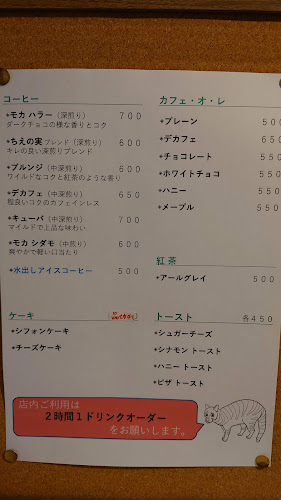 コーヒー
•モカ ハラー（深煎り） 700
ダークチョコの様な香りとコク
•ちえの実ブレンド（深煎り） 600
キレの良い深煎りブレンド
•ブルンジ（中深煎り） 600
ワイルドなコクと紅茶のような香り
•デカフェ（中深煎り） 650
程良いコクのカフェインレス
•キューバ（中深煎り） 700
マイルドで上品な味わい
•モカ シダモ（中煎り） 600
爽やかで軽い口当たり
•水出しアイスコーヒー 500
カフェ・オ・レ
•プレーン 500
•デカフェ 650
•チョコレート 550
•ホワイトチョコ 550
•ハニー 550
•メープル 550
紅茶
•アールグレイ 500
ケーキ
•シフォンケーキ
•チーズケーキ
トースト 各450
•シュガーチーズ
•シナモン トースト
•ハニー トースト
•ピザ トースト
店内ご利用は
２時間１ドリンクオーダー
をお願いします。